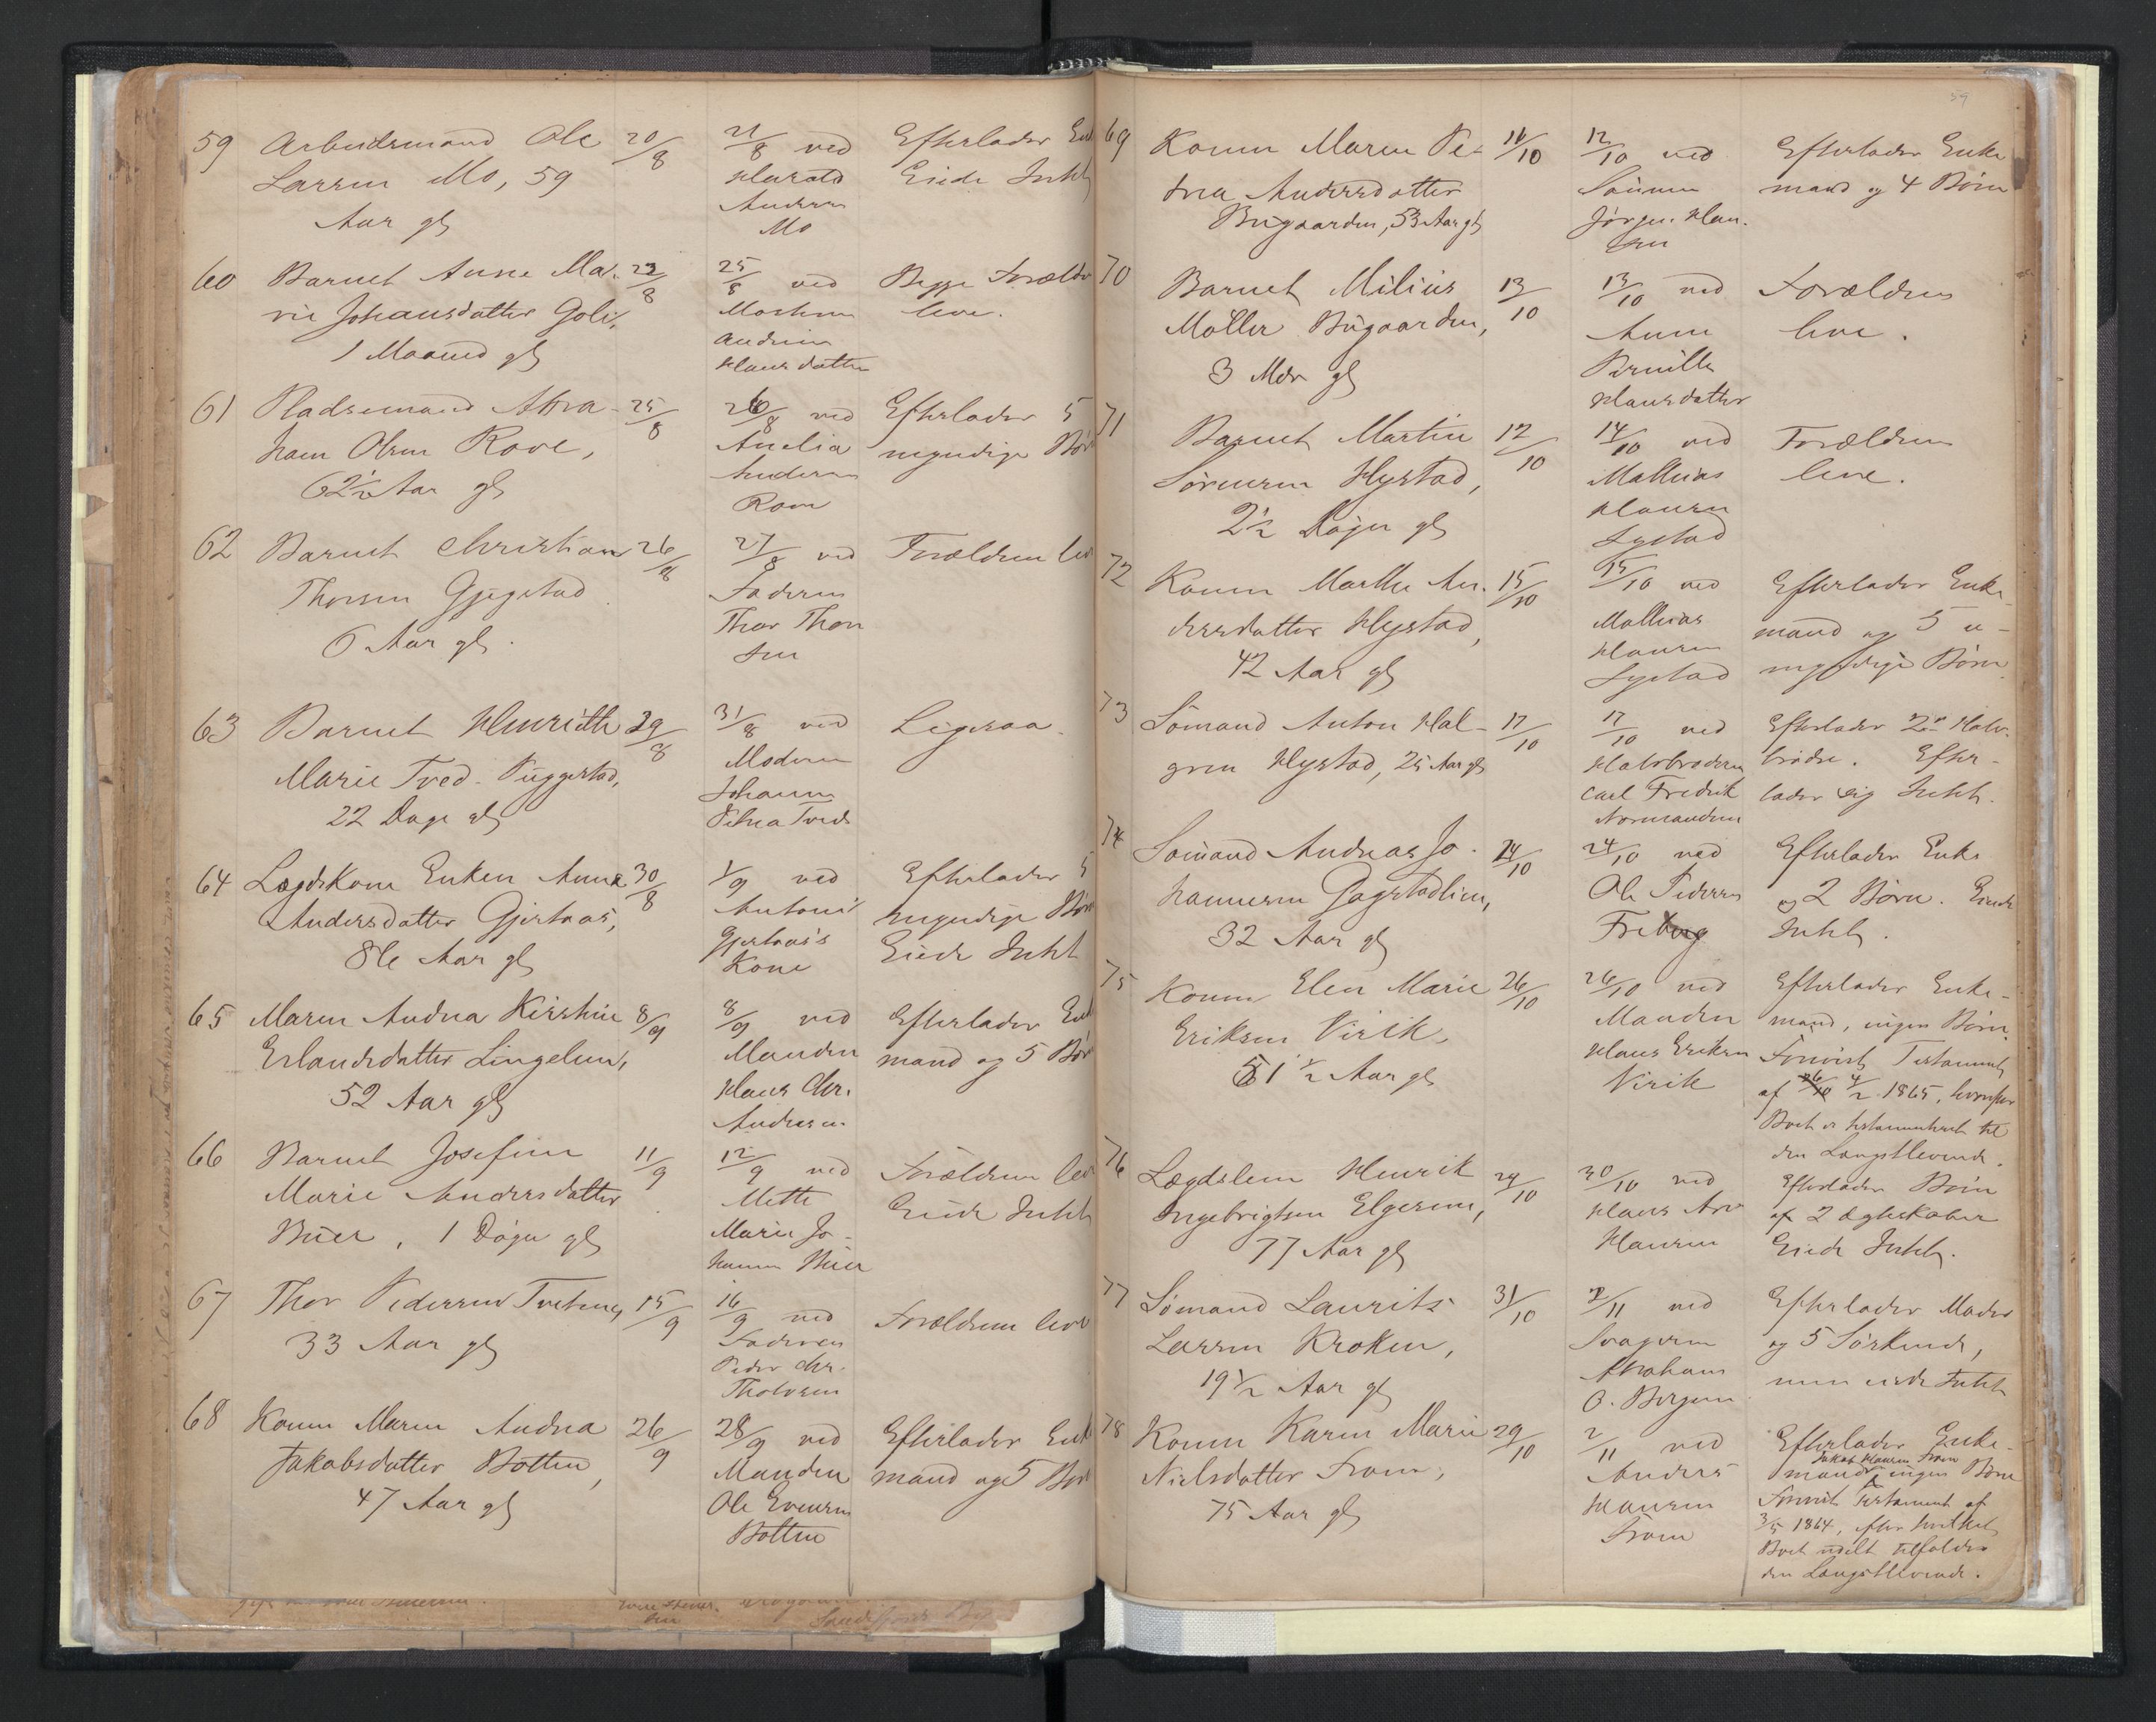 59 Arbeidsmand Ole 20/8 21/8 ved Efterlader Enk
Larsen Mo, 59 Harald Eiede Intet
Aar gl Andersen
Mo
60 Barnet Anne Ma- 23/8 25/8 ved Begge Forældre
rie Johansdatter Goli, Marthea leve.
1 Maaned gl Andrine
Hansdatter
61 Pladsemand Abra- 25/8 26/8 ved Efterlader 5
ham Olsen Rove, Anelia myndige Bør
62½ Aar gl Andersen
Rove
62 Barnet Christian 26/8 27/8 ved Forældrene lev
Thorsen Gjøgstad Faderen
6 Aar gl. Thor Thor
sen
63 Barnet Henriette 29/8 31/8 ved Ligesaa.
Marie Tved-Puggestad, Moderen
22 Dage gl Johanne
Petrea Tved
64 Lægdskone Enken Anne 30/8 1/9 ved Efterlader 5
Andersdatter Gjertnæs, Antoni myndige Bør
86 Aar gl Gjertnæs's Eiede Intet
Kone
65 Maren Andrea Kirstine 8/9 8/9 ved Efterlader Enk
Erlandsdatter Lingelem, Manden mand og 5 Bør
52 Aar gl Hans Chr.
Andresen
66 Barnet Josefine 11/9 12/9 ved Forældrene lev
Marie Andersdatter Mette Eiede Intet
Buer, 1 Døgn gl Marie Jo-
hanne Buer
67 Thor Pedersen Tveteng, 15/9 16/9 ved Forældrene leve
33 Aar gl Faderen
Peder Chr.
Tholvsen
68 Konen Maren Andrea 26/9 28/9 ved Efterlader Enk
Jakobsdatter Botten, Manden mand og 5 Bør
47 Aar gl Ole Evensen
Botten
59
69 Konen Maren Pe- 11/10 12/10 ved Efterlader Enke
trea Andersdatter Sønnen mand og 4 Børn
Bugaarden, 53 Aar gl Jørgen Han-
sen
70 Barnet Milius 13/10 13/10 ved Forældrene
Møller Bugaarden, Anne leve.
3 Mdr gl Pernille
Hansdatter
71 Barnet Martin 12/10 14/10 ved Forældrene
Sørensen Hystad, Mathias leve.
2½ Døgn gl Hansen
Hystad
72 Konen Marthe An- 15/10 15/10 ved Efterlader Enke-
dersdatter Hystad, Mathias mand og 5 u-
42 Aar gl Hansen myndige Børn
Hystad
73 Sømand Anton Hal- 17/10 17/10 ved Efterlader 2de Halv-
gren Hystad, 25 Aar gl Halvbroderen brødre. Efter-
Carl Fredrik lader sig Intet.
Normanden
74 Sømand Andreas Jo- 24/10 24/10 ved Efterlader Enke
hannesen Gogstadlien, Ole Pedersen og 2 Børn. Eiede
32 Aar gl Freberg Intet.
75 Konen Elen Marie 26/10 26/10 ved Efterlader Enke-
Eriksen Virik, Manden mand, ingen Børn.
51½ Aar gl Hans Eriksen Forevist Testament
Virik af 26/10 4/2 1865, hvorefter
Boet er testamenteret til
den Længstlevende.
76 Lægdslem Henrik 29/10 30/10 ved Efterlader Børn
Ingebrigtsen Elgesem, Hans Arv af 2 Ægteskaber
77 Aar gl Hansen Eiede Intet.
77 Sømand Laurits 31/10 2/11 ved Efterlader Moder
Larsen Kroken, Svogeren og 5 Søskende,
19½ Aar gl Abraham men eiede Intet
O. Bergan
78 Konen Karen Marie 29/10 2/11 ved Efterlader Enke-
Nielsdatter Fram, Anders mand Jakob Hansen Fram ingen Børn
75 Aar gl Hansen Forevist Testament af
Fram 3/5 1864, efter hvilket
Boet udelt tilfalder
den Længstlevende.